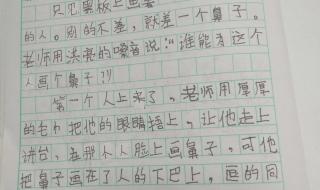 只见黑板上画着
的人。别的不差，就差一个鼻子。
老师用洪亮的嗓音说：“谁能为这个
人画个鼻子？”
第一个人上来了，老师用厚厚
的毛巾把他的眼睛捂上，让他走上
讲台，在那个人脸上画鼻子，可他
把鼻子画在了人的下巴上，画的同